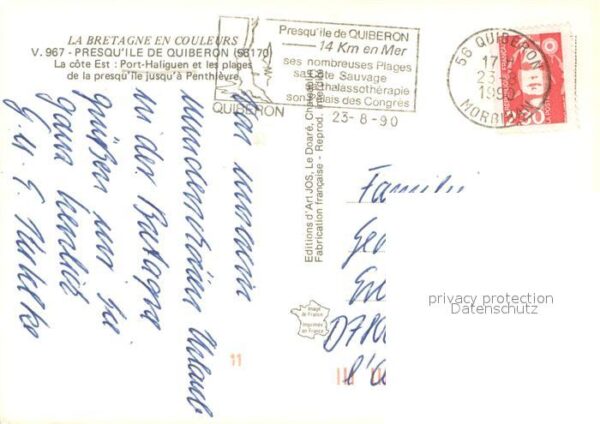 LA BRETAGNE EN COULEURS
V. 967 - PRESQU'ILE DE QUIBERON (56170)
La côte Est : Port-Haliguen et les plages
de la presqu'île jusqu'à Penthièvre
Presqu'ile de QUIBERON
14 Km en Mer
ses nombreuses Plages
sa Côte Sauvage
thalassothérapie
son Palais des Congrès
QUIBERON
23-8-90
56 QUIBERON
17 H
23-8
1990
MORBIHAN
2,30
Editions d'Art JOS, Le Doaré, Châteaulin
Fabrication française - Reprod. interdite
Image de France
Imprimée en France
Von unserem
wunderschönen Urlaub
in der Bretagne
grüßen wir Sie
ganz herzlich
Familie
privacy protection
Datenschutz
11